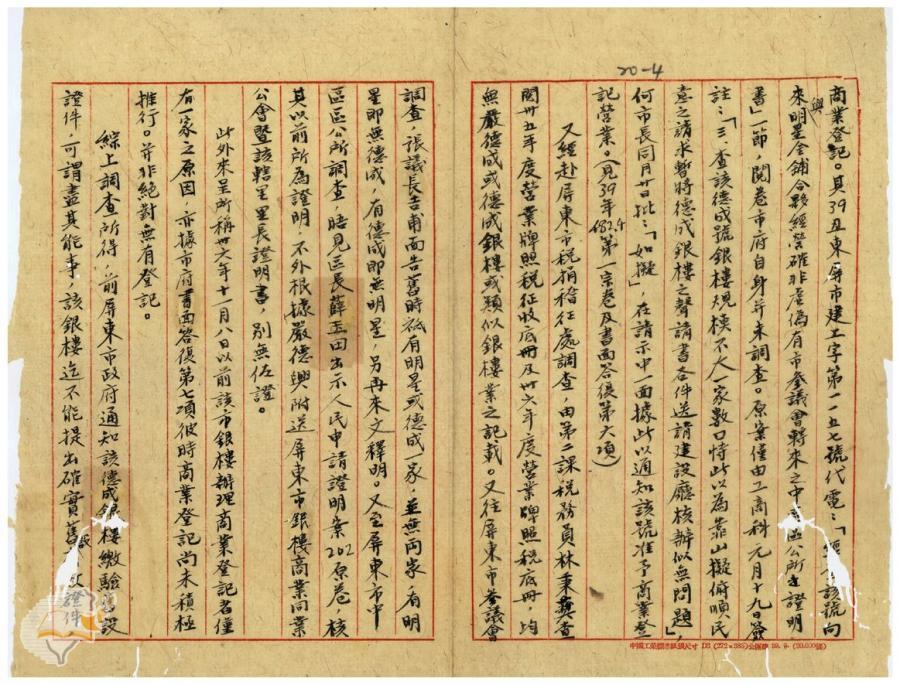 20-4
商業登記。其39丑東屏市建工字第一一五七號代電：「經查該號向
來與明星金鋪合夥經營確非虛偽有市參議會轉來之中區公所證明
書」一節，閱卷市府自身并未調查。原案僅由工商科元月十九日簽
註：「三、查該德成號銀樓規模不大一家數口恃此以為靠山擬俯順民
意之請求暫將德成銀樓之聲請書各件送請建設廳核辦似無問題」，
何市長同月廿日批：「如擬」，在請示中一面據此以通知該號准予商業登
記營業。（見39年682.4第一宗卷及書面答復第六項）
又經赴屏東市稅捐稽征處調查，由第二課稅務員林秉彝查
閱卅五年度營業牌照稅征收底冊及卅六年度營業牌照稅底冊，均
無嚴德成或德成銀樓或類似銀樓業之記載。又往屏東市參議會
調查，張議長吉甫面告舊時祇有明星或德成一家，並無兩家，有明
星即無德成，有德成即無明星，另再來文釋明。又至屏東市中
區區公所調查，晤見區長薛玉田出示人民申請證明案202原卷，核
其以前所為證明，不外根據嚴德興附送屏東市銀樓商業同業
公會暨該轄里里長證明書，別無佐證。
此外來呈所稱卅六年十一月八日以前該市銀樓辦理商業登記者僅
有一家之原因，亦據市府書面答復第七項彼時商業登記尚未積極
推行。并非絕對無有登記。
綜上調查所得，前屏東市政府通知該德成銀樓繳驗舊設
證件，可謂盡其能事，該銀樓迄不能提出確實舊設證件
中國工業標準紙張尺寸 D3 (272×385)公厘 39. 9. (20,000張)